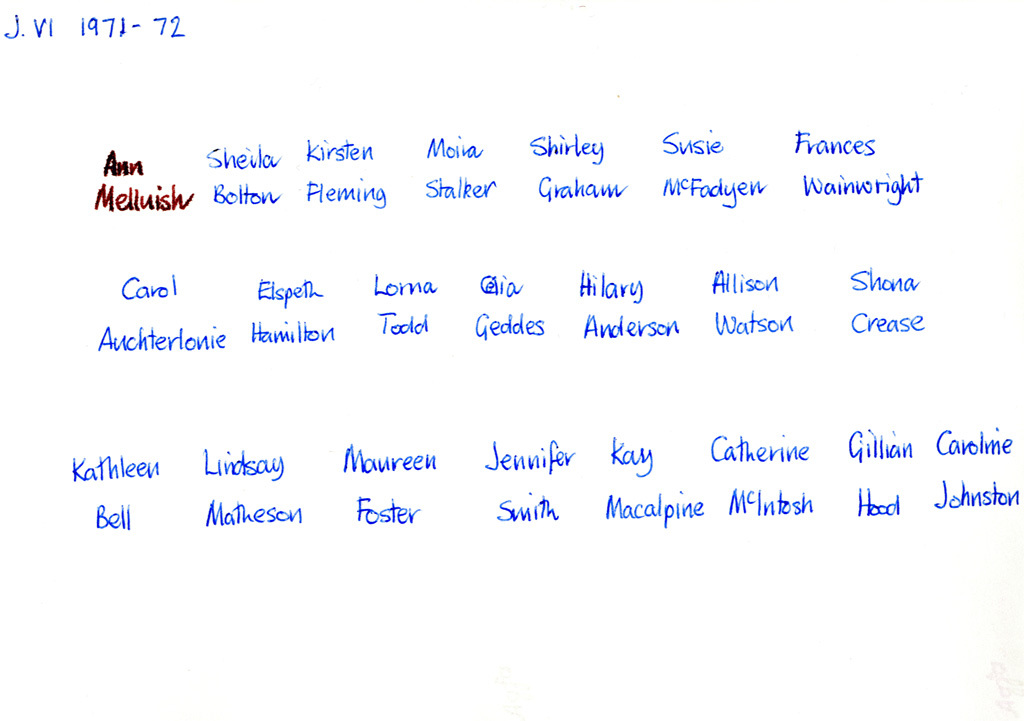 J. VI 1971-72
Ann Sheila Kirsten Moira Shirley Susie Frances
Melluish Bolton Fleming Stalker Graham McFadyen Wainwright
Carol Elspeth Lorna Hilary Allison Shona
Auchterlonie Hamilton Todd Geddes Anderson Watson Crease
Kathleen Lindsay Maureen Jennifer Kay Catherine Gillian Caroline
Bell Matheson Foster Smith Macalpine McIntosh Hood Johnston